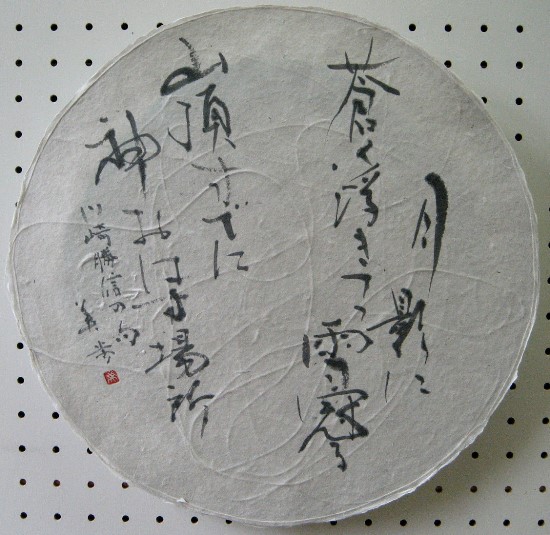 月影に
蒼く浮きたつ雪冠る
山頂すでに
神おはす場所
川崎勝信の句